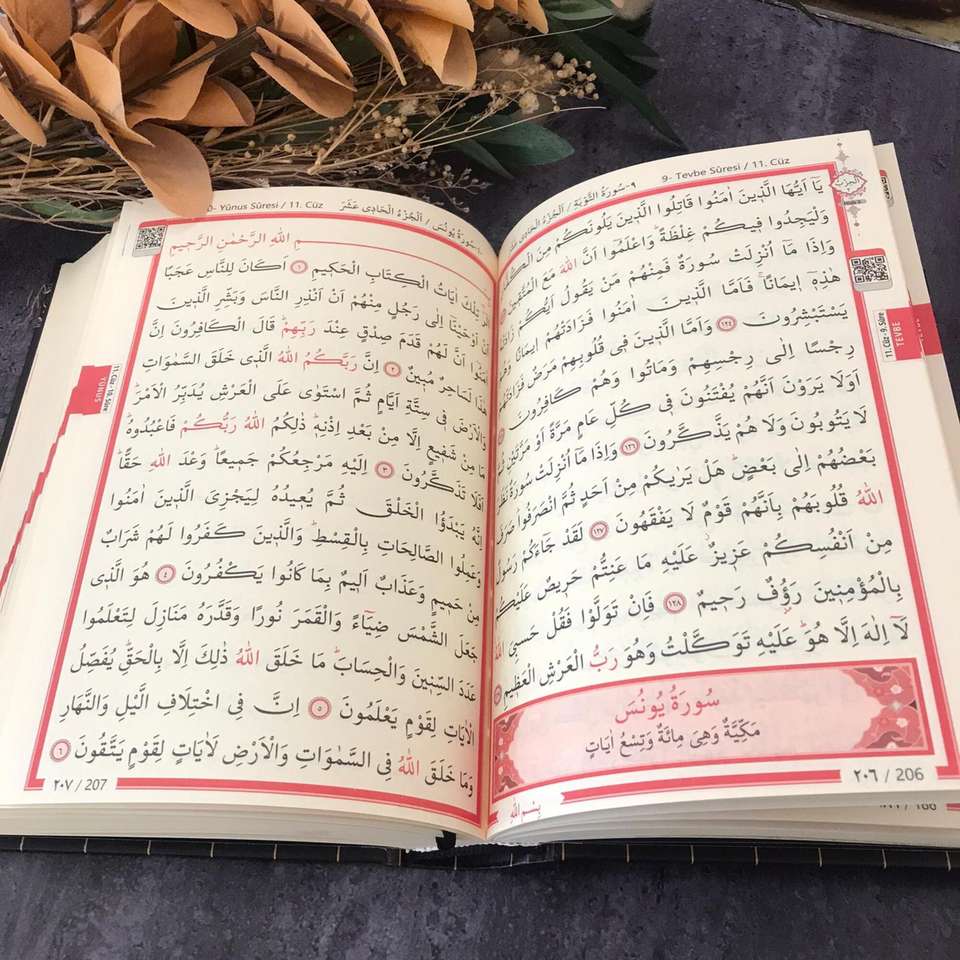 9- Tevbe Sûresi / 11. Cüz
٩-سُورَةُ التَّوْبَةِ / اَلْجُزْءُ الْحَادِى
يَآ اَيُّهَا الَّذٖينَ اٰمَنُوا قَاتِلُوا الَّذٖينَ يَلُونَكُمْ مِنَ
وَلْيَجِدُوا فٖيكُمْ غِلْظَةًؕ وَاعْلَمُٓوا اَنَّ اللّٰهَ مَعَ الْمُتَّقٖينَ
وَاِذَا مَٓا اُنْزِلَتْ سُورَةٌ فَمِنْهُمْ مَنْ يَقُولُ اَيُّكُمْ
هٰذِهٖٓ اٖيمَانًاۚ فَاَمَّا الَّذٖينَ اٰمَنُوا فَزَادَتْهُمْ اٖيمَانًا
يَسْتَبْشِرُونَ ١٢٤ وَاَمَّا الَّذٖينَ فٖى قُلُوبِهِمْ مَرَضٌ
رِجْسًا اِلٰى رِجْسِهِمْ وَمَاتُوا وَهُمْ كَافِرُونَ
اَوَلَا يَرَوْنَ اَنَّهُمْ يُفْتَنُونَ فٖى كُلِّ عَامٍ مَرَّةً اَوْ مَرَّتَيْنِ
لَا يَتُوبُونَ وَلَا هُمْ يَذَّكَّرُونَ ١٢٦ وَاِذَا مَٓا اُنْزِلَتْ سُورَةٌ نَظَرَ
بَعْضُهُمْ اِلٰى بَعْضٍؕ هَلْ يَرٰيكُمْ مِنْ اَحَدٍ ثُمَّ انْصَرَفُوا صَرَفَ
اللّٰهُ قُلُوبَهُمْ بِاَنَّهُمْ قَوْمٌ لَا يَفْقَهُونَ ١٢٧ لَقَدْ جَٓاءَكُمْ رَسُولٌ
مِنْ اَنْفُسِكُمْ عَزٖيزٌ عَلَيْهِ مَا عَنِتُّمْ حَرٖيصٌ عَلَيْكُمْ
بِالْمُؤْمِنٖينَ رَؤُفٌ رَحٖيمٌ ١٢٨ فَاِنْ تَوَلَّوْا فَقُلْ حَسْبِىَ اللّٰهُ
لَٓا اِلٰهَ اِلَّا هُوَؕ عَلَيْهِ تَوَكَّلْتُ وَهُوَ رَبُّ الْعَرْشِ الْعَظٖيمِ
سُورَةُ يُونُسَ
مَكِّيَّةٌ وَهِىَ مِائَةٌ وَتِسْعُ اٰيَاتٍ
٢٠٦ / 206
بِسْمِ اللّٰهِ
11. Cüz - 9. Sûre
TEVBE
Yûnus Sûresi / 11. Cüz
سُورَةُ يُونُسَ / اَلْجُزْءُ الْحَادِى عَشَرَ
اللّٰهِ الرَّحْمٰنِ الرَّحٖيمِ
تِلْكَ اٰيَاتُ الْكِتَابِ الْحَكٖيمِ ١ اَكَانَ لِلنَّاسِ عَجَبًا
اَنْ اَوْحَيْنَٓا اِلٰى رَجُلٍ مِنْهُمْ اَنْ اَنْذِرِ النَّاسَ وَبَشِّرِ الَّذٖينَ
اٰمَنُٓوا اَنَّ لَهُمْ قَدَمَ صِدْقٍ عِنْدَ رَبِّهِمْؕ قَالَ الْكَافِرُونَ اِنَّ
هٰذَا لَسَاحِرٌ مُبٖينٌ ٢ اِنَّ رَبَّكُمُ اللّٰهُ الَّذٖى خَلَقَ السَّمٰوَاتِ
وَالْاَرْضَ فٖى سِتَّةِ اَيَّامٍ ثُمَّ اسْتَوٰى عَلَى الْعَرْشِ يُدَبِّرُ الْاَمْرَؕ
مَا مِنْ شَفٖيعٍ اِلَّا مِنْ بَعْدِ اِذْنِهٖؕ ذٰلِكُمُ اللّٰهُ رَبُّكُمْ فَاعْبُدُوهُؕ
اَفَلَا تَذَكَّرُونَ ٣ اِلَيْهِ مَرْجِعُكُمْ جَمٖيعًاؕ وَعْدَ اللّٰهِ حَقًّاؕ
اِنَّهُ يَبْدَؤُا الْخَلْقَ ثُمَّ يُعٖيدُهُ لِيَجْزِىَ الَّذٖينَ اٰمَنُوا
وَعَمِلُوا الصَّالِحَاتِ بِالْقِسْطِؕ وَالَّذٖينَ كَفَرُوا لَهُمْ شَرَابٌ
مِنْ حَمٖيمٍ وَعَذَابٌ اَلٖيمٌ بِمَا كَانُوا يَكْفُرُونَ ٤ هُوَ الَّذٖى
جَعَلَ الشَّمْسَ ضِيَٓاءً وَالْقَمَرَ نُورًا وَقَدَّرَهُ مَنَازِلَ لِتَعْلَمُوا
عَدَدَ السِّنٖينَ وَالْحِسَابَؕ مَا خَلَقَ اللّٰهُ ذٰلِكَ اِلَّا بِالْحَقِّۚ يُفَصِّلُ
الْاٰيَاتِ لِقَوْمٍ يَعْلَمُونَ ٥ اِنَّ فٖى اخْتِلَافِ الَّيْلِ وَالنَّهَارِ
وَمَا خَلَقَ اللّٰهُ فِى السَّمٰوَاتِ وَالْاَرْضِ لَاٰيَاتٍ لِقَوْمٍ يَتَّقُونَ ٦
٢٠٧ / 207
11. Cüz - 10. Sûre
YUNUS